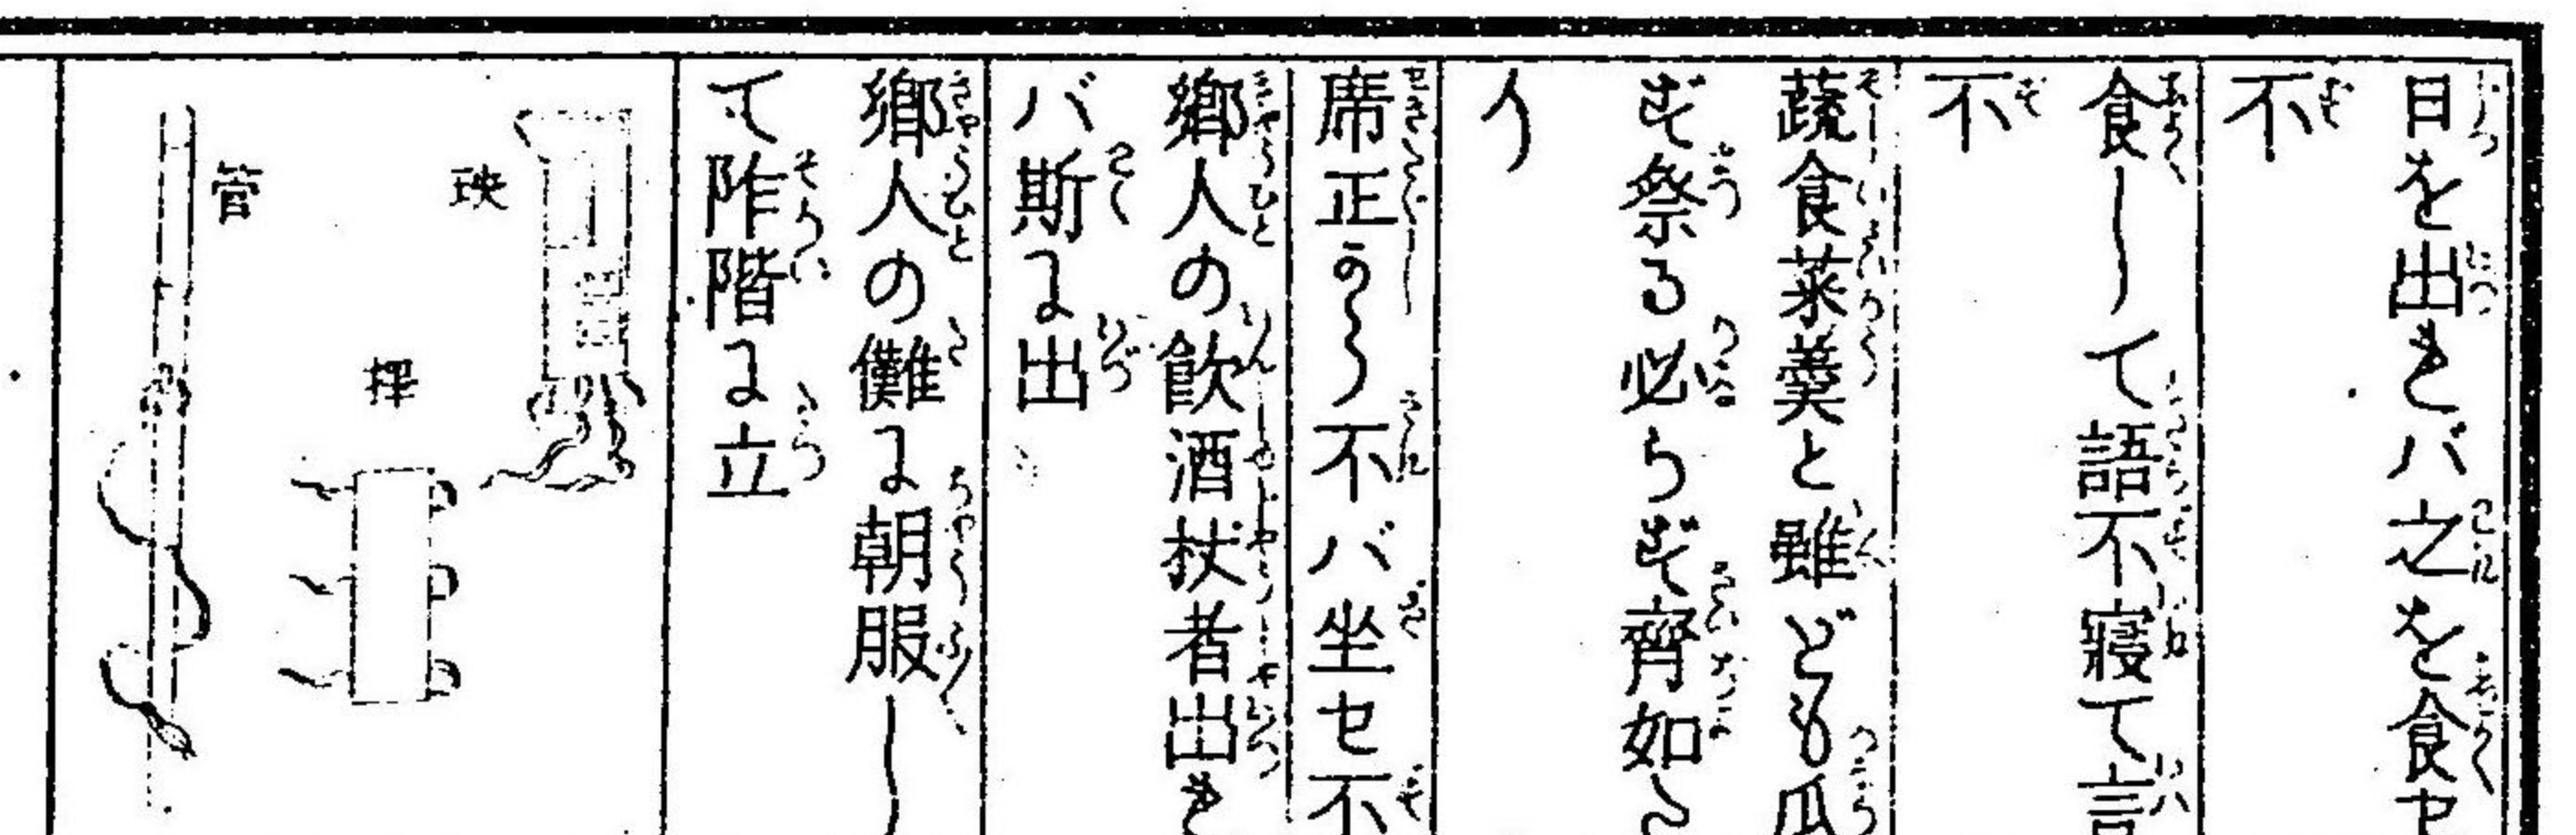 日を出れバ之を食セ
不
食して語不寝て言
不
蔬食菜羹と雖ども瓜
ず祭る必らず齊如た
り
席正から不バ坐セ不
郷人の飲酒杖者出れ
バ斯に出
郷人の儺に朝服し
て阼階に立
玦
捍
管